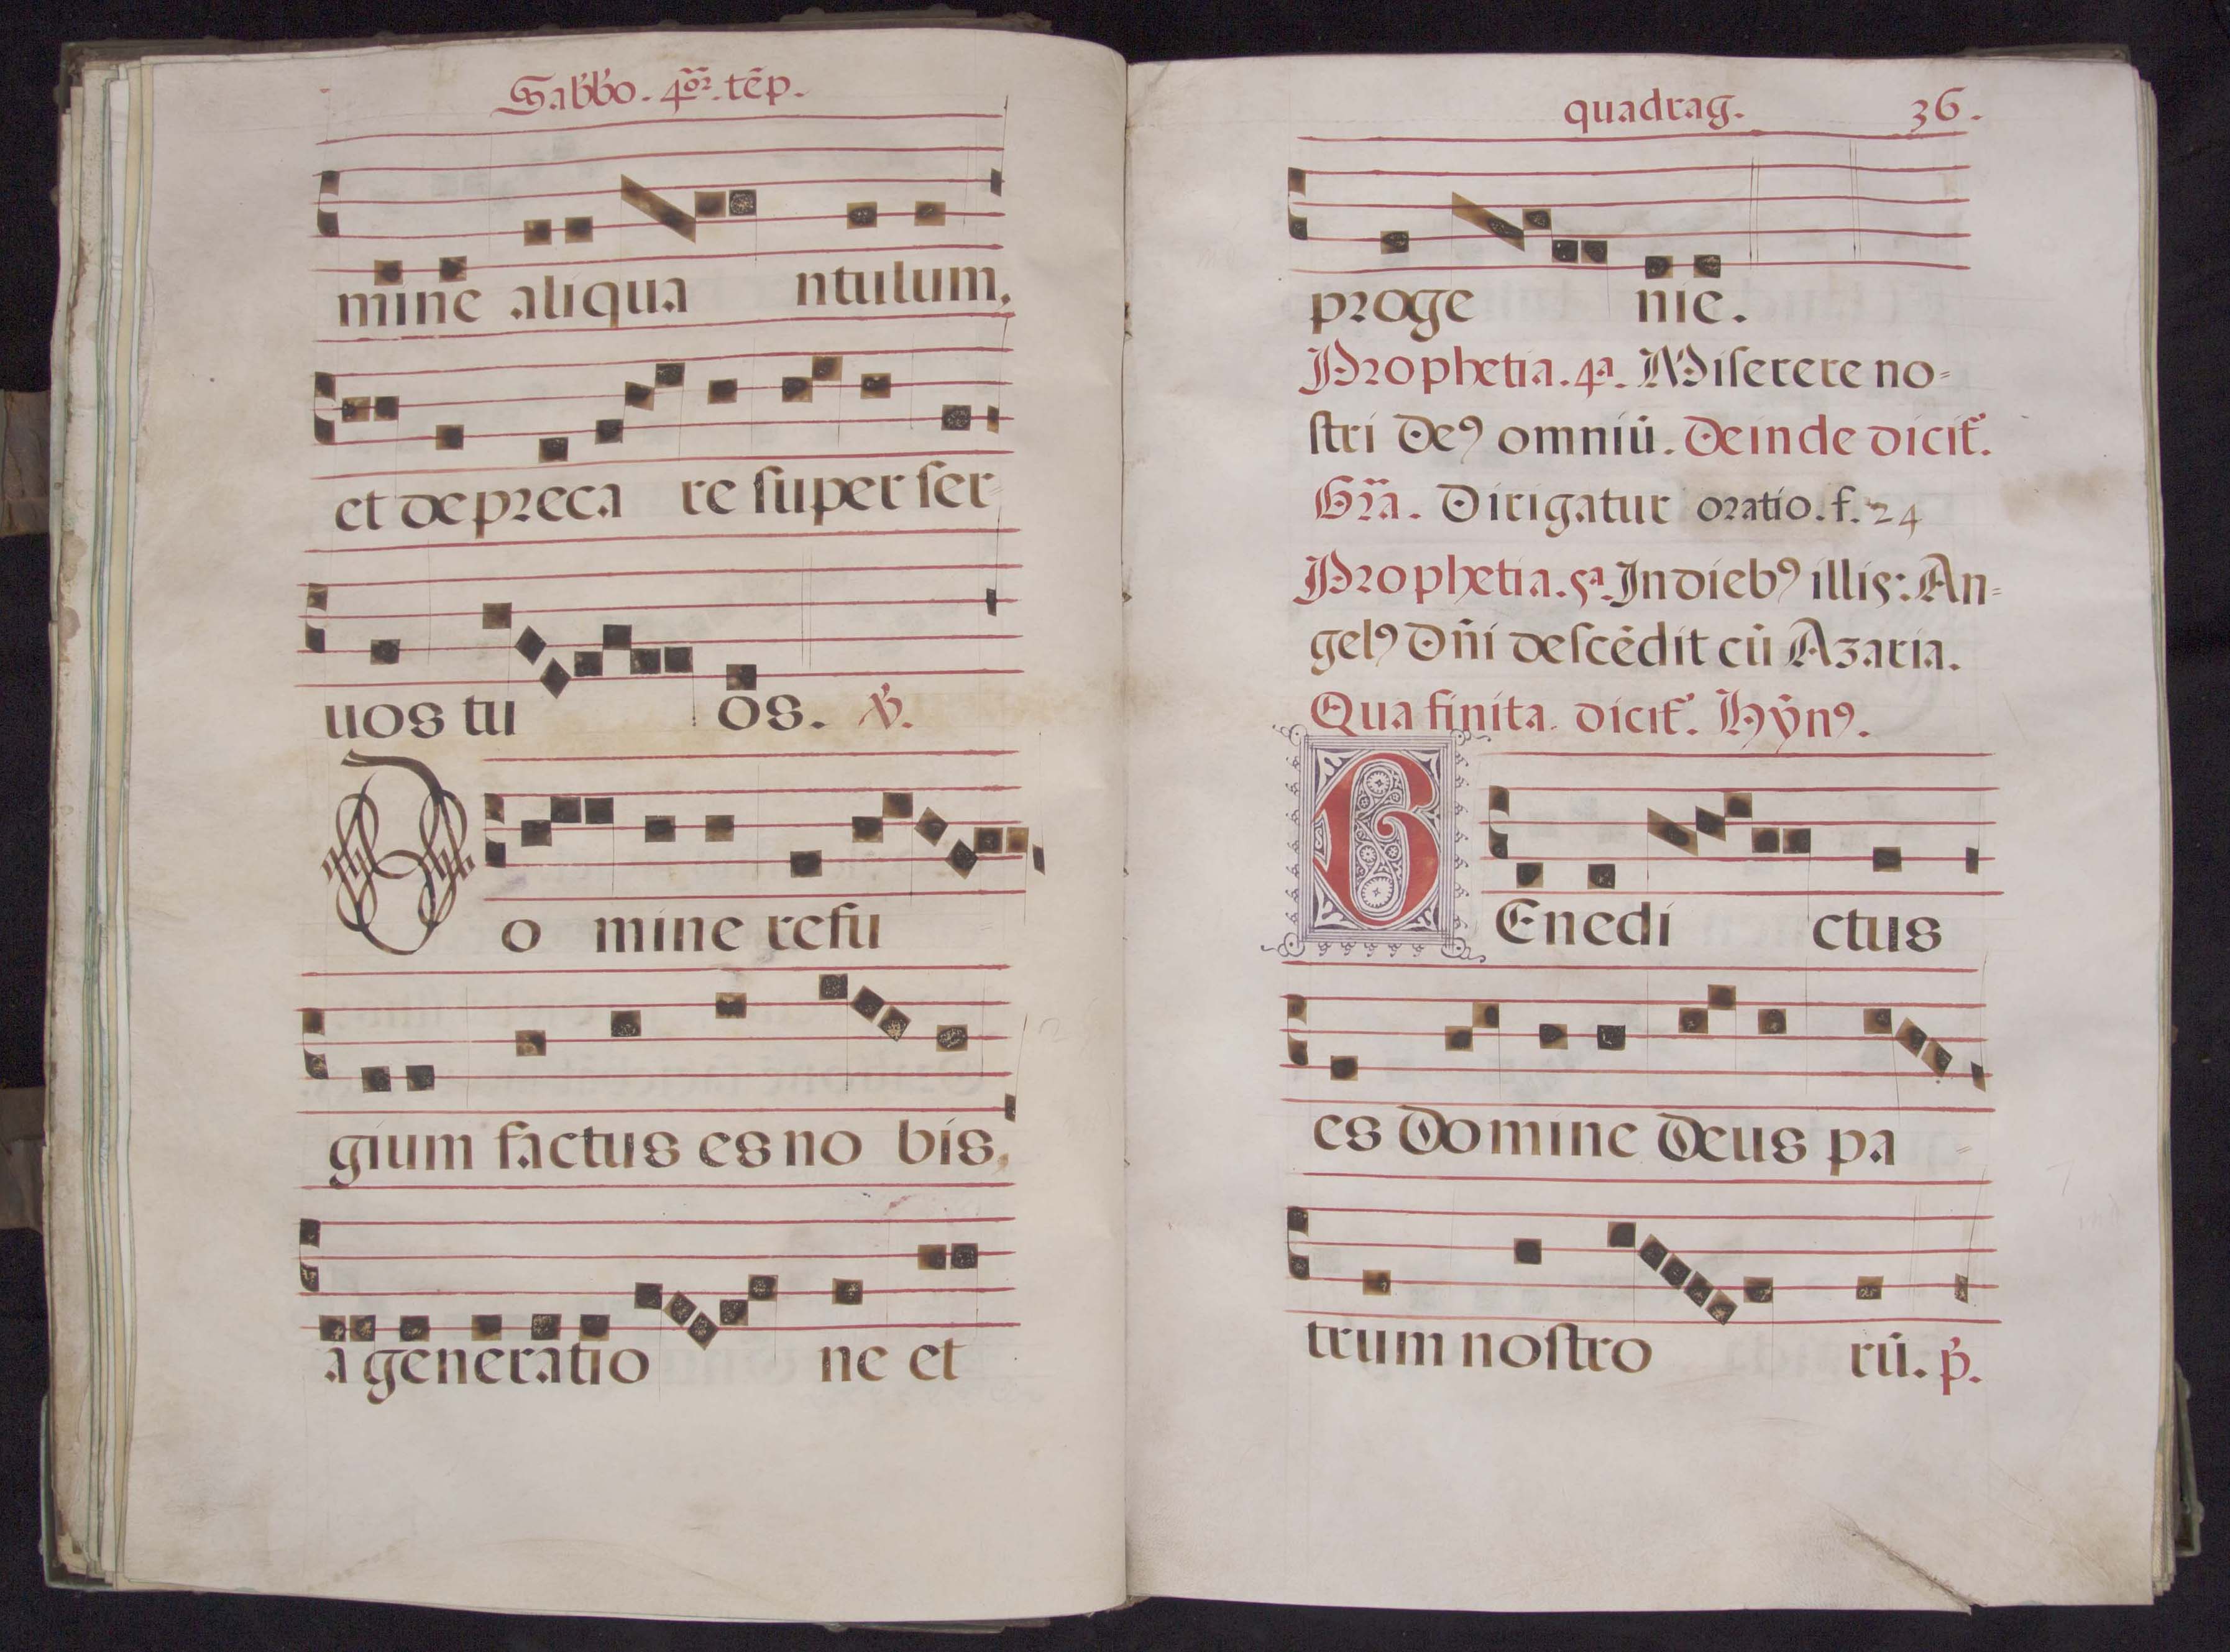 Sab̃b̃o. 4.or tẽp.
mine aliqua ntulum,
et depreca re ſuper ſer-
uos tu os. ℣.
Do mine refu
gium factus es no bis,
a generatio ne et
quadrag. 36.
proge nie.
Prophetia. 4ª. Miſerere no-
ſtri Deꝰ omniũ. Deinde dicit᷑.
Gr̃a. Dirigatur oratio. f. 24
Prophetia. 5ª. In diebꝰ illis: An-
gelꝰ Dñi deſcẽdit cũ Azaria.
Qua finita. dicit᷑. Hỹnꝰ.
BEnedi ctus
es Domine Deus pa -
trum noſtro rũ. p̃.